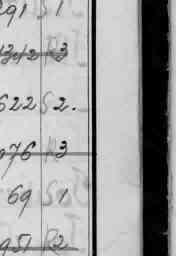 291 S 1
1312 R 3
622 S 2.
076 R 3
69 S 1
951 R 2